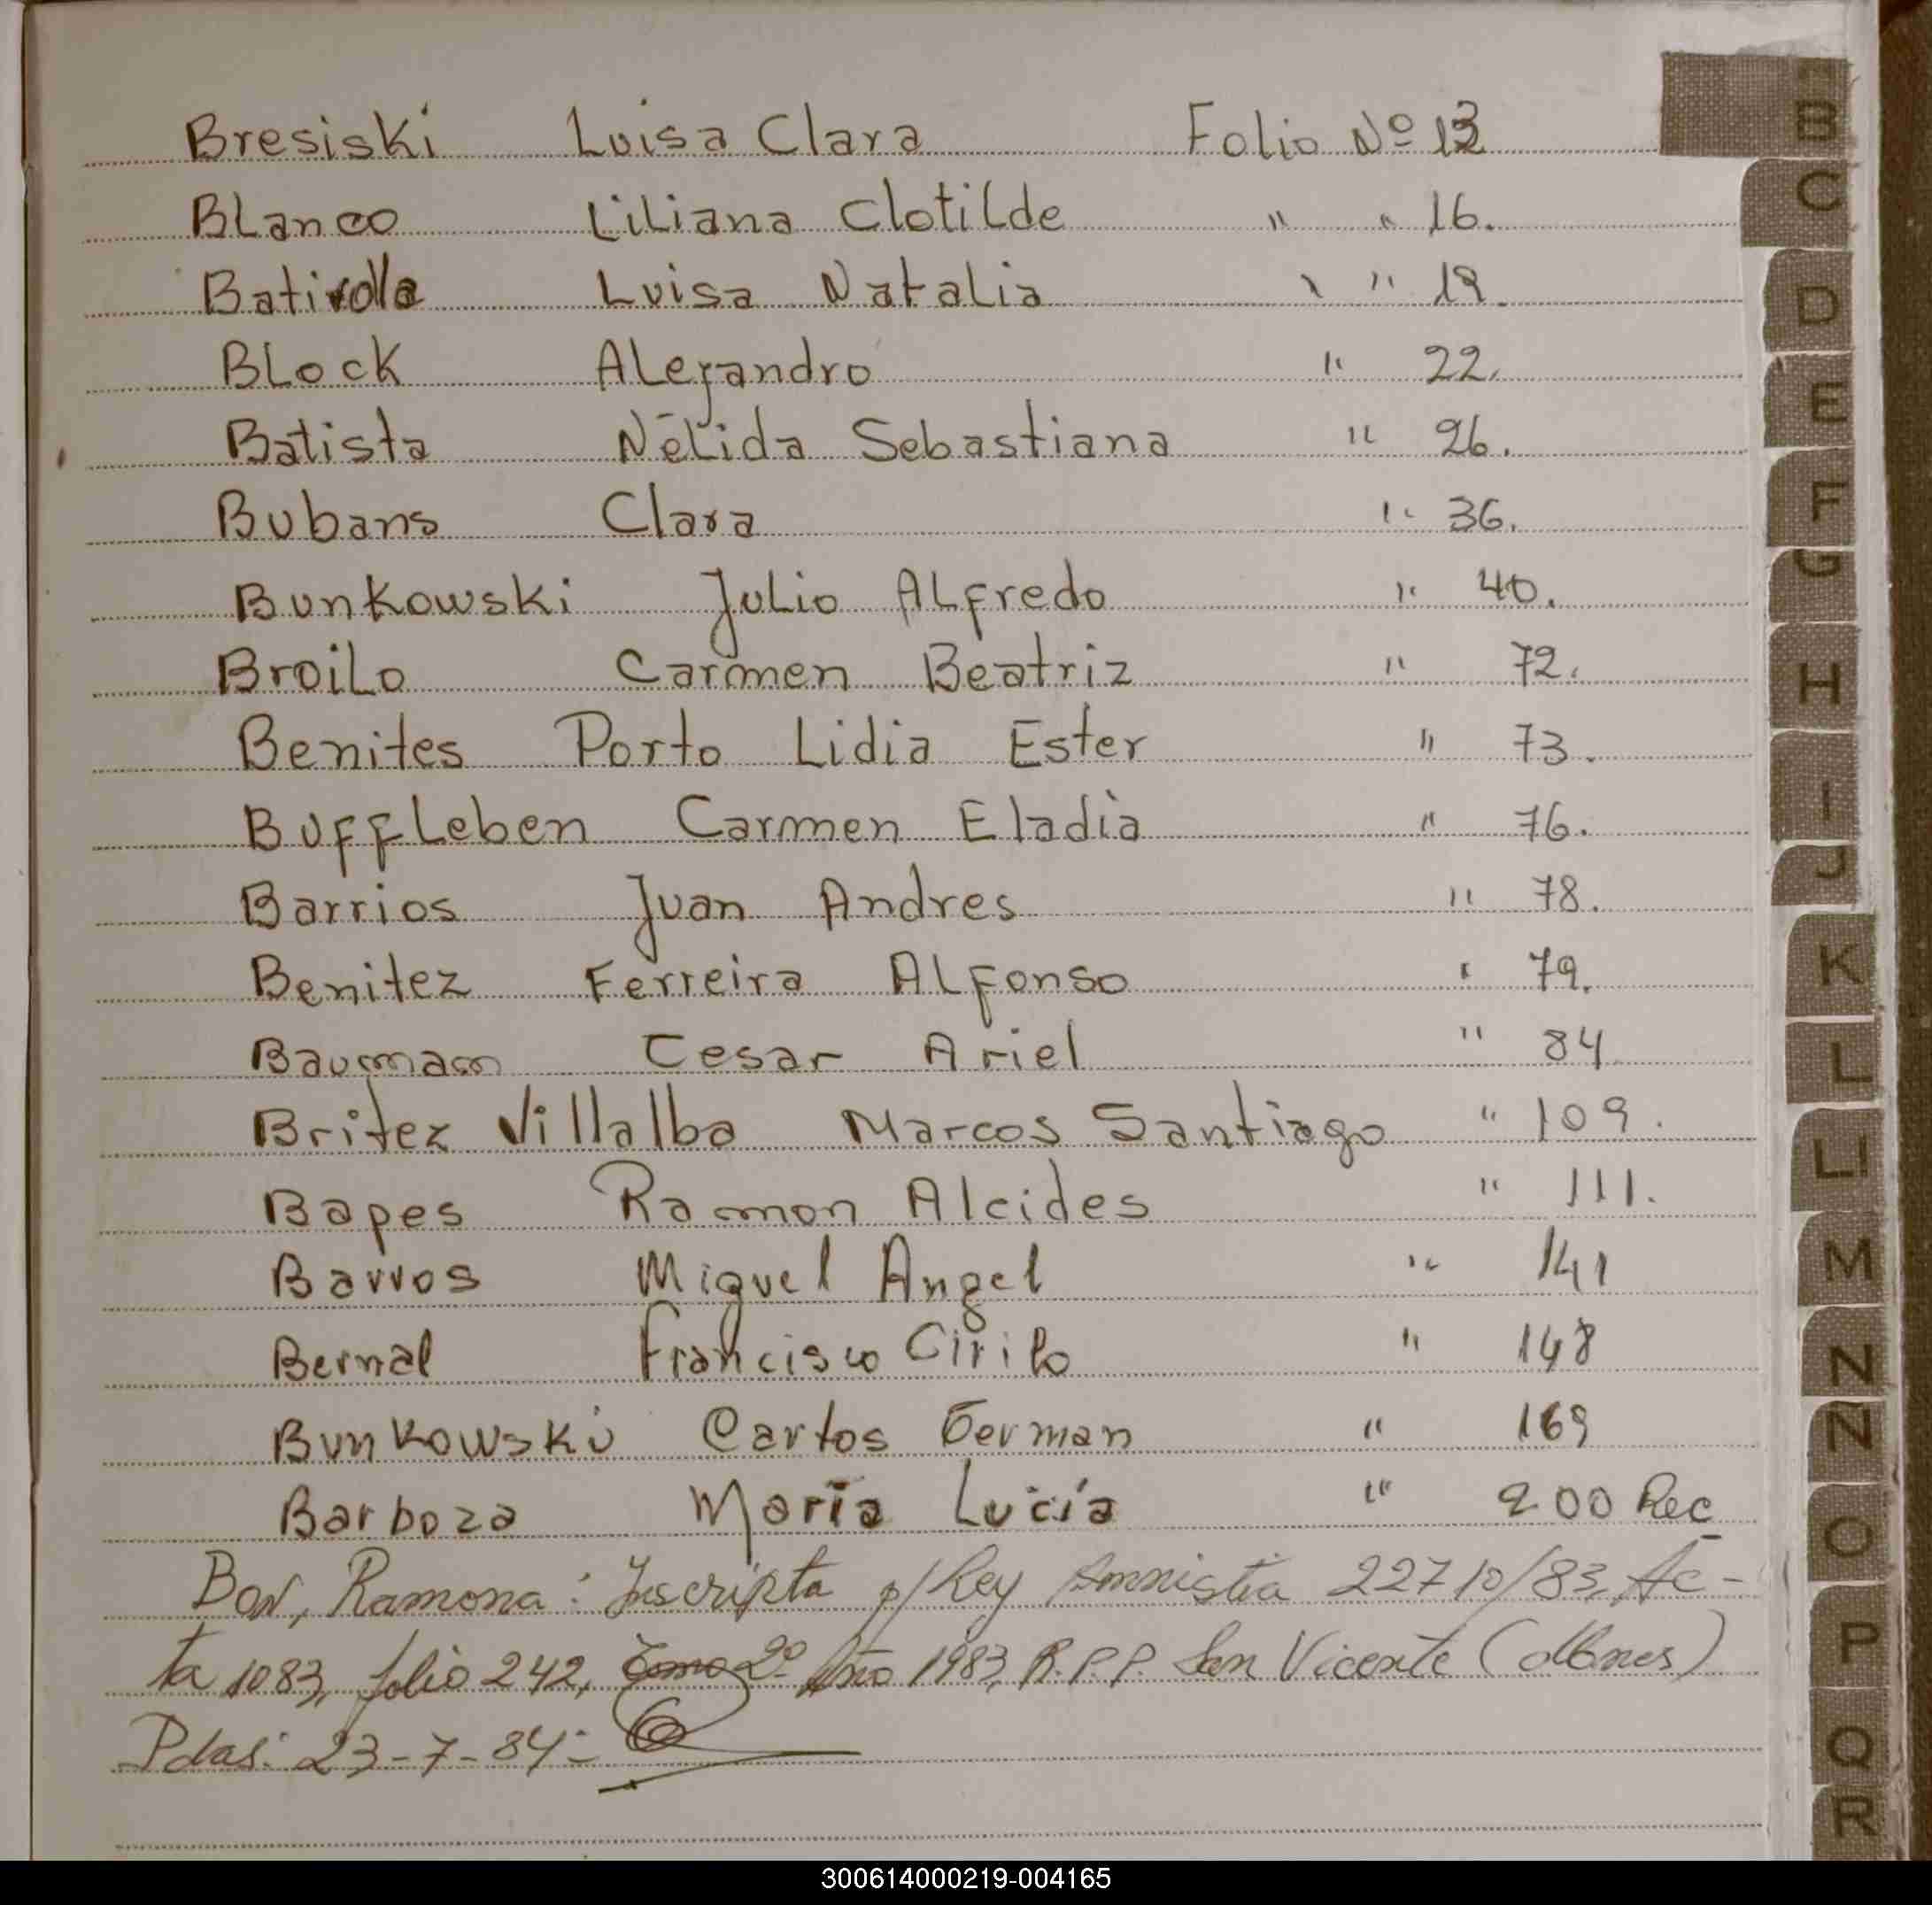 Bresiski Luisa Clara Folio Nº 13
Blanco Liliana Clotilde " " 16.
Luisa Natalia " " 19.
Block Alejandro " 22.
Batista Nélida Sebastiana " 26.
Bubans Clara " 36.
Bunkowski Julio Alfredo " 40.
Broilo Carmen Beatriz " 72.
Benites Porto Lidia Ester " 73.
Buffleben Carmen Eladia " 76.
Barrios Juan Andres " 78.
Benitez Ferreira Alfonso " 79.
Baumann Cesar Ariel " 84
Britez Villalba Marcos Santiago " 109.
Bapes Ramon Alcides " 111.
Barros Miguel Angel " 141
Bernal Francisco Cirilo " 148
Bunkowski Carlos German " 169
Barboza Maria Lucia " 200 Rec
Ramona: Inscripta p/ Ley Amnistia 22710/83, Ac-
ta 1083, folio 242, Tomo 2º Año 1983, R.P.P. San Vicente
Pdas: 23-7-84-
B
C
D
E
F
G
H
I
J
K
L
Ll
M
N
Ñ
O
P
Q
R
300614000219-004165